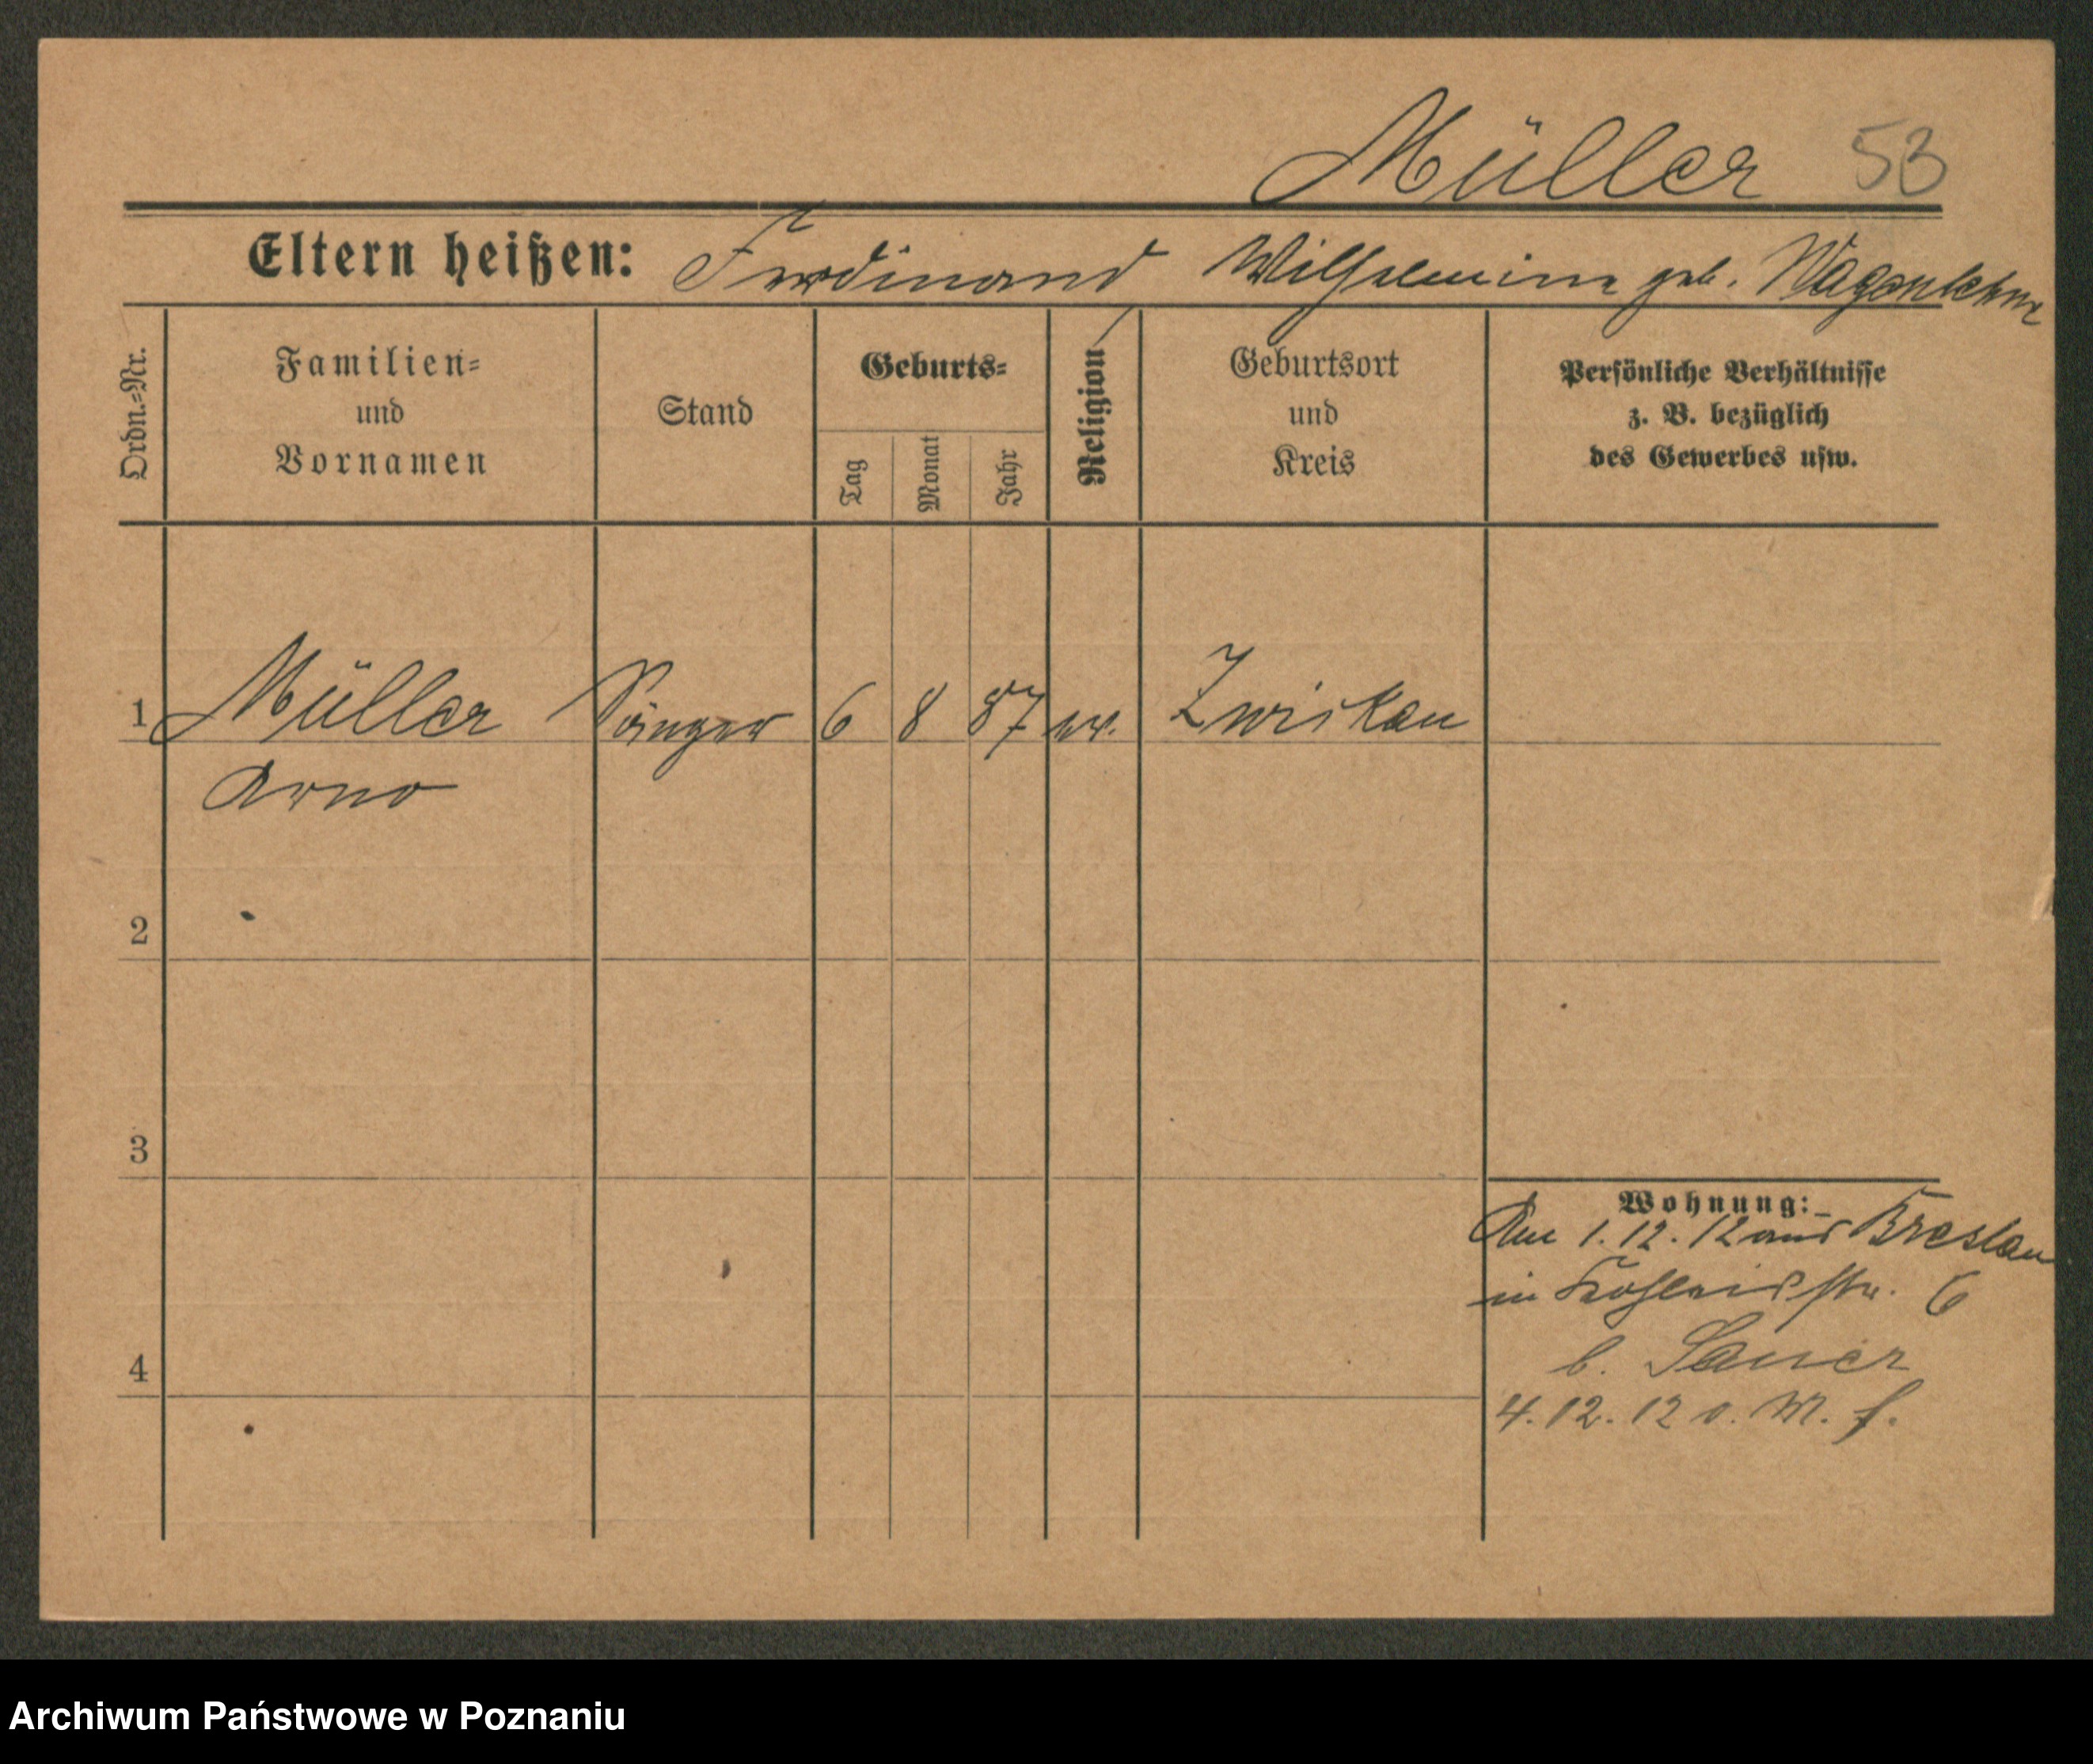 Müller 53
Eltern heißen: Ferdinand Wilhelmine geb. Wagenlehne
Ordn.=Nr.
Familien=
und
Vornamen
Stand
Geburts=
Tag
Monat
Jahr
Religion
Geburtsort
und
Kreis
Persönliche Verhältnisse
z. B. bezüglich
des Gewerbes usw.
1 Müller Sänger 6 8 87 ev. Zwickau
Arno
2
3
4
Wohnung:
Am 1.12.12 aus Breslau
in 6
b. Sauer
4.12.12 v. M. f.
Archiwum Państwowe w Poznaniu